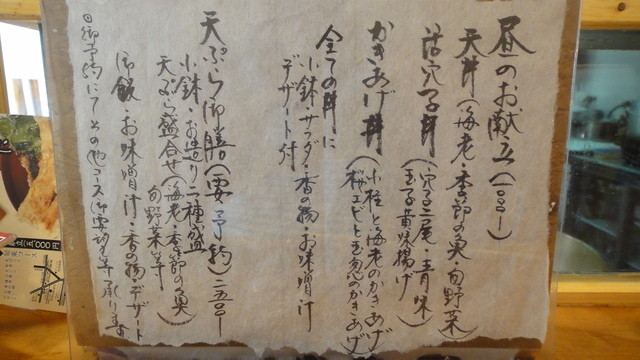 昼のお献立(一〇〇〇ー)
天丼(海老・季節の魚・旬野菜)
活穴子丼(穴子一尾・青味
玉子黄味揚げ)
かきあげ丼(小柱と海老のかきあげ
桜エビと玉葱のかきあげ)
全ての丼に
小鉢・サラダ・香の物・お味噌汁
デザート付
天ぷら御膳(要予約)二五〇〇ー
小鉢・お造り二種盛
天ぷら盛合せ(海老・季節の魚
旬野菜等)
御飯・お味噌汁・香の物・デザート
御予約にてその他コース御要望等承ります
5,000円